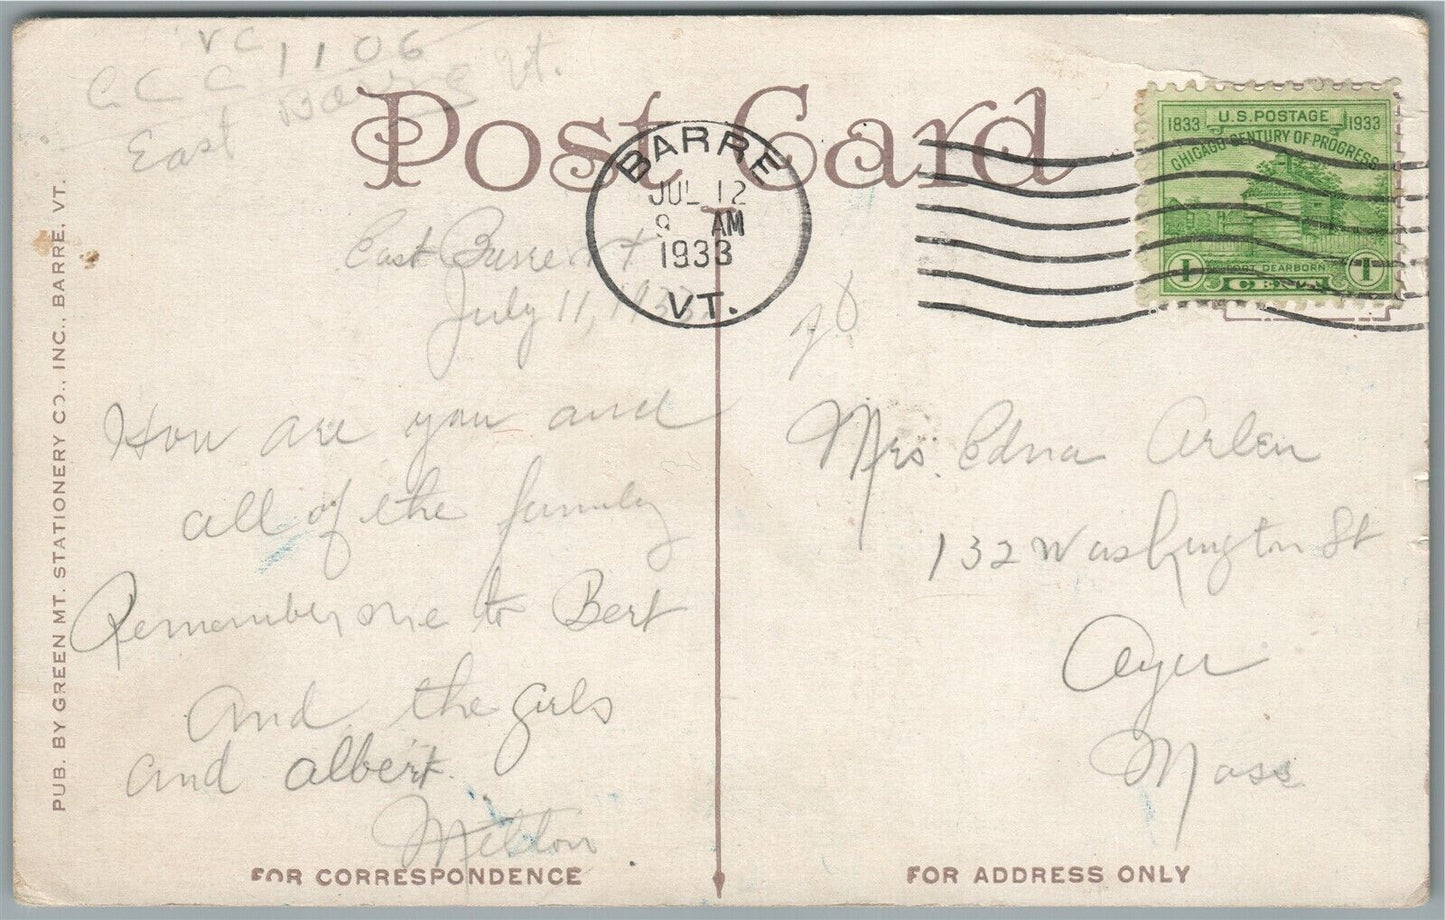 VC 1106
C C C
East Barre Vt.
Post Card
BARRE
JUL 12
9 AM
1933
VT.
1833 U.S. POSTAGE 1933
CHICAGO CENTURY OF PROGRESS
FORT DEARBORN
1 CENT 1
PUB. BY GREEN MT. STATIONERY CO., INC., BARRE, VT.
East Barre Vt
July 11, 1933
How are you and
all of the family
Remember me to Bert
and the girls
and albert.
Milton
FOR CORRESPONDENCE
Mrs. Edna Arlen
132 Washington St
Ayer
Mass
FOR ADDRESS ONLY